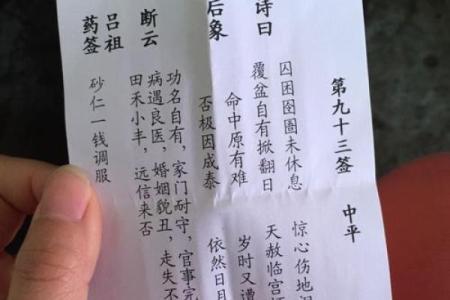 第九十三签 中平
诗曰
囚困囹圄未休息 惊心伤地
覆盆自有掀翻日 天赦临宫
后象
命中原有难 岁时又遭
否极因成泰 依然日月
断云
功名自有，家门耐守，官事完
病遇良医，婚姻貌丑，走失不
田禾小丰，远信来否
吕祖
药签
砂仁一钱调服